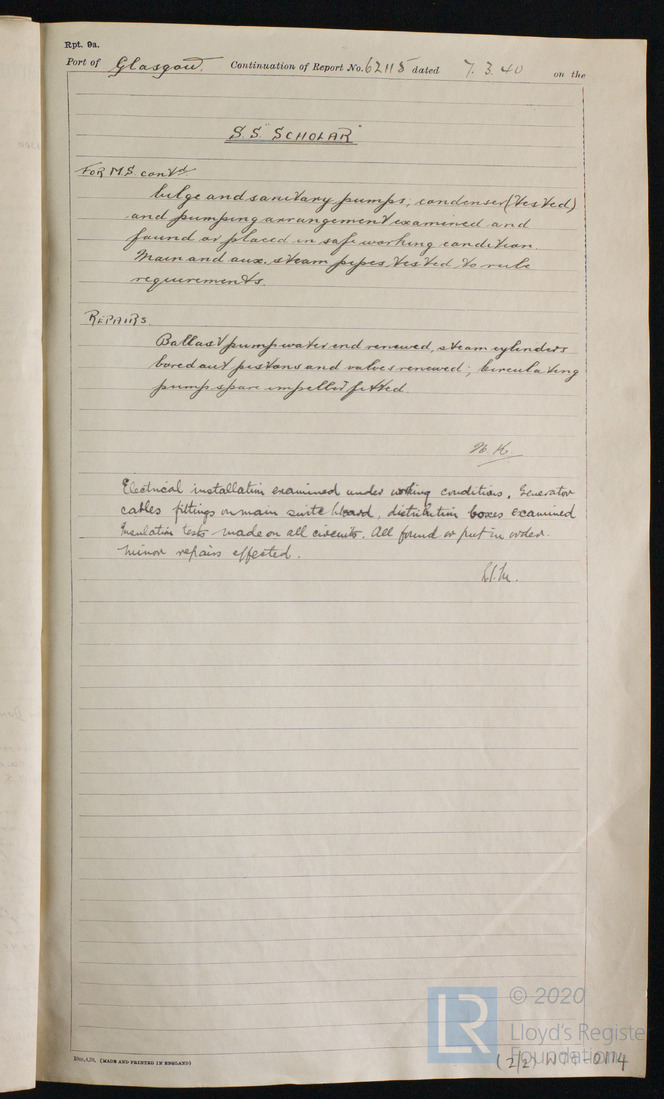 Rpt. 9a.
Port of Glasgow. Continuation of Report No. 62118 dated 7. 3. 40 on the
S.S. "SCHOLAR"
FOR M.S. contd.
bilge and sanitary pumps, condenser (tested)
and pumping arrangement examined and
found or placed in safe working condition.
Main and aux. steam pipes tested to rule
requirements.
REPAIRS.
Ballast pump water end renewed, steam cylinders
bored out pistons and valves renewed; circulating
pump spare impeller fitted.
Electrical installation examined under working conditions. Generator
cables fittings on main switchboard, distribution boxes examined
Insulation tests made on all circuits. All found or put in order.
Minor repairs effected.
(MADE AND PRINTED IN ENGLAND)
LR
© 2020
Lloyd's Register
Foundation
(2/2) W77-0114